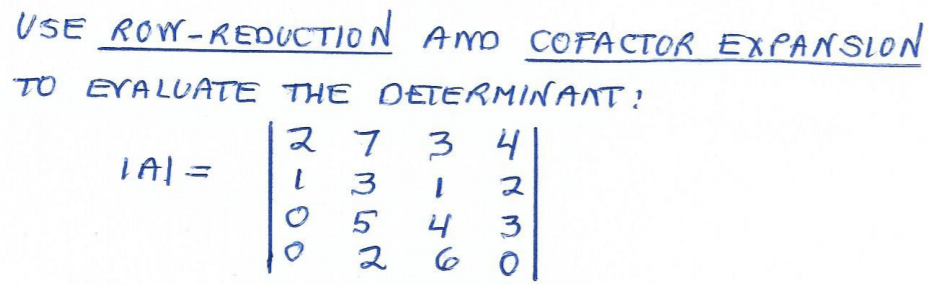 USE ROW-REDUCTION AND COFACTOR EXPANSION
TO EVALUATE THE DETERMINANT:
|A| = | 2 7 3 4 |
| 1 3 1 2 |
| 0 5 4 3 |
| 0 2 6 0 |